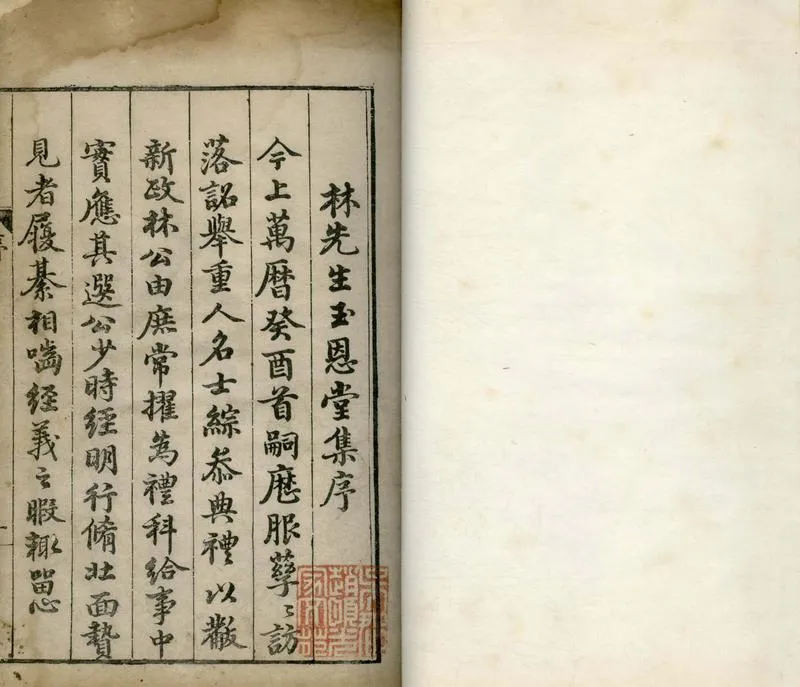 林先生玉恩堂集序
今上萬曆癸酉首嗣厯服孳〻訪
落詔舉重人名士綜叅典禮以黻
新政林公由庶常擢為禮科給事中
實應其選公少時經明行脩北面贄
見者履綦相嚙經義之暇輒留心
序